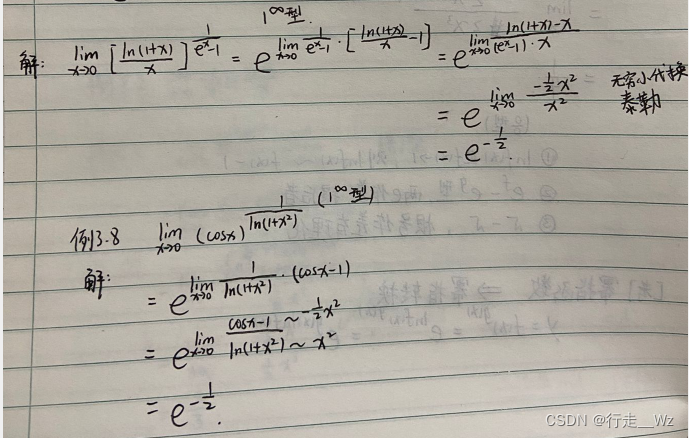 1^∞型.
解: lim_{x→0} [ln(1+x)/x]^{1/(e^x-1)} = e^{lim_{x→0} 1/(e^x-1) · [ln(1+x)/x - 1]} = e^{lim_{x→0} (ln(1+x)-x)/((e^x-1)·x)}
= e^{lim_{x→0} (-1/2 x²)/x²} 无穷小代换 泰勒
= e^{-1/2}.
例3.8 lim_{x→0} (cosx)^{1/ln(1+x²)} (1^∞型)
解:
= e^{lim_{x→0} 1/ln(1+x²) · (cosx-1)}
= e^{lim_{x→0} (cosx-1 ~ -1/2 x²)/(ln(1+x²) ~ x²)}
= e^{-1/2}.
CSDN @行走__Wz